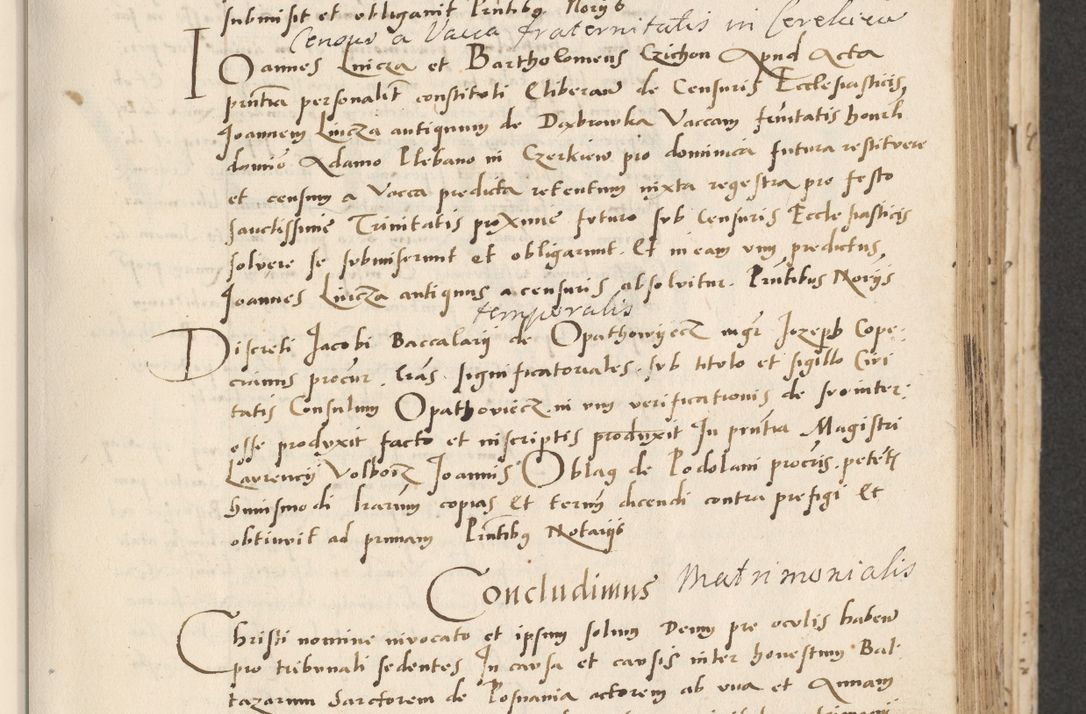 submisit et obligavit Pntibus Norijs
Census a Vacca fraternitatis in Cerekiew
Ioannes Lnicza et Bartholomeus Czichon Apud Acta
pntia personalit constituti Cliberaw de Censuris Ecclesiasticis
Joannem Lnicza antiquum de Dąbrowka Vaccam frnitatis honrli
domino Adamo Plebano in Czerkiew pro dominica futura restituere
et censum a Vacca predicta retentum iuxta regestra pro festo
sanctissime Trinitatis proxime futuro sub Censuris Ecclesiasticis
solvere se submiserunt et obligarunt. Et in eam vim predictus
Joannes Lnicza antiquus a censuris absolvitur. Pntibus Norijs
temporalis
Discreti Jacobi Baccalarij de Opathowijecz mgr Jozeph Cope-
cianus procur. lras significatoriales sub titulo et sigillo Civi
tatis Consulum Opathoviecz in vim verificationis de sv inter
esse produxit facto et inscriptis produxit In pntia Magistri
Laurencij Volborz Joannis Oblag de Podolani procris petets
huiusmodi lrarum copias Et termm dicendi contra prefigi Et
obtinuit ad primam Pntibus Notarijs
Concludimus Matrimonialis
Christi nomine invocato et ipsum solum Deum pre oculis habew
pro tribunali sedentes In causa et causis inter honestum Bal-
tazarum Sarctorem de Posnania actorem ab vna et Annam